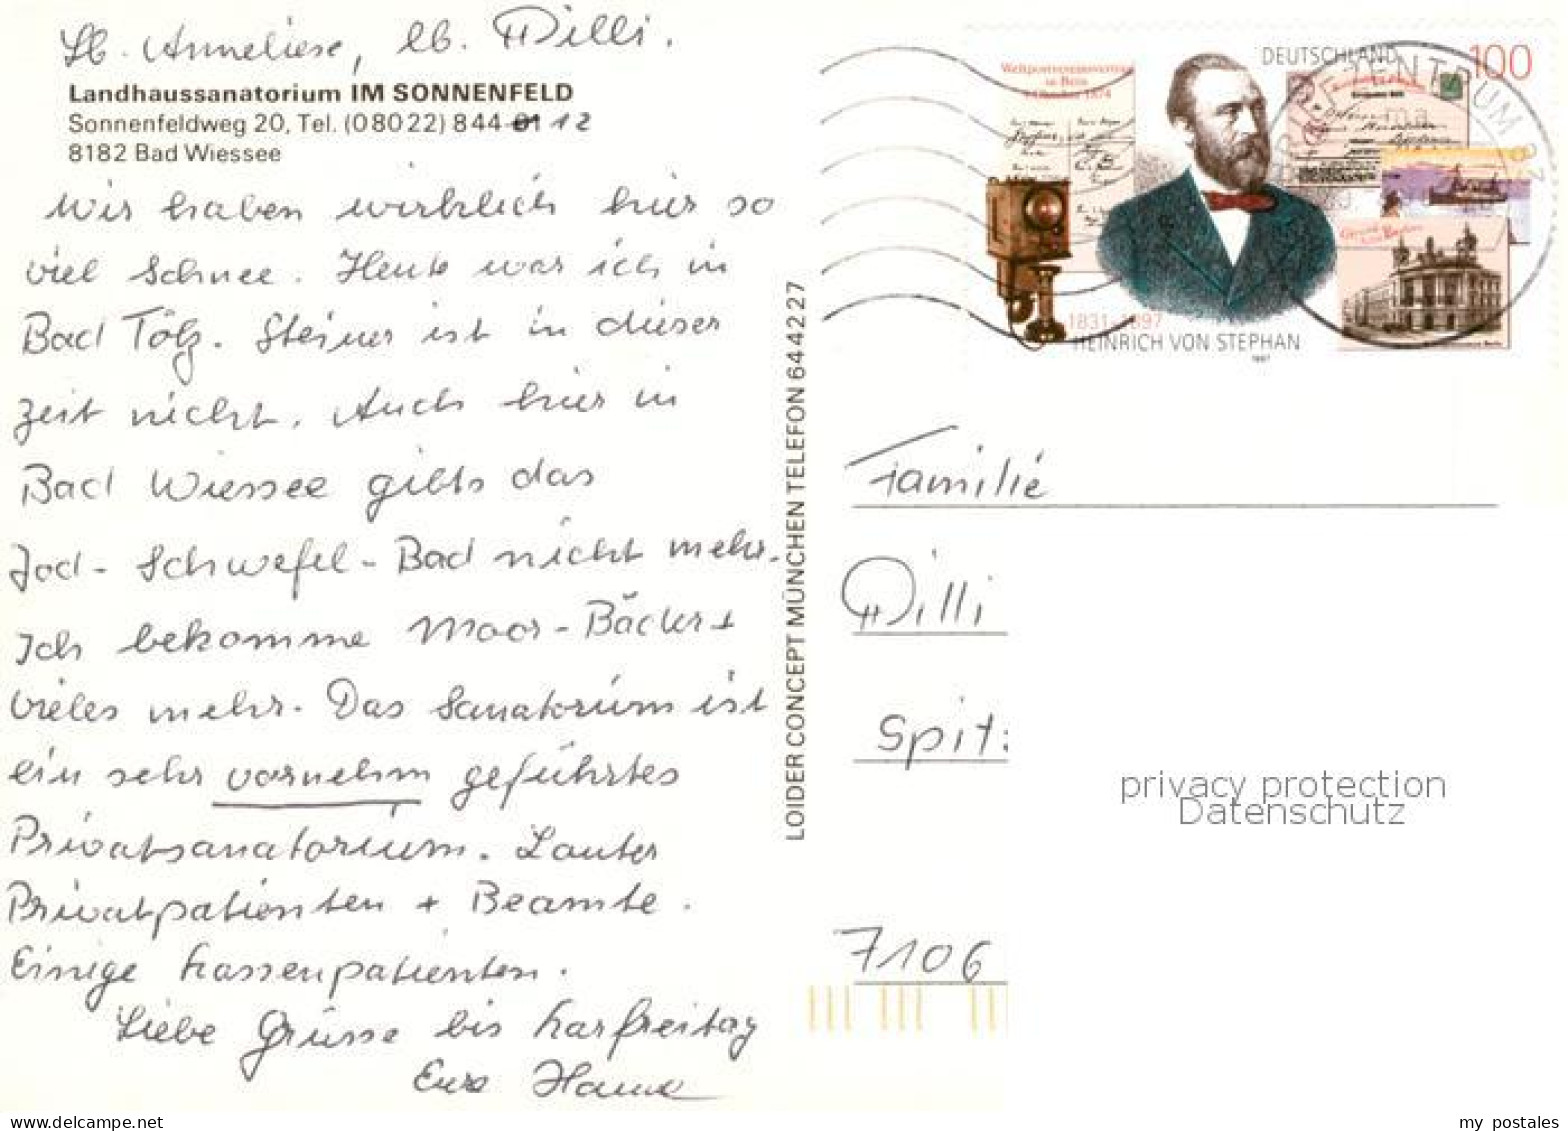 Lb. Anneliese, lb. Willi.
Landhaussanatorium IM SONNENFELD
Sonnenfeldweg 20, Tel. (08022) 844-01 12
8182 Bad Wiessee
Wir haben wirklich hier so
viel Schnee. Heute war ich in
Bad Tölz. Steiner ist in dieser
Zeit nicht. Auch hier in
Bad Wiessee gibts das
Jod-Schwefel-Bad nicht mehr.
Ich bekomme Moor-Bäder +
vieles mehr. Das Sanatorium ist
ein sehr vornehm geführtes
Privatsanatorium. Lauter
Privatpatienten + Beamte.
Einige Kassenpatienten.
Liebe Grüsse bis Karfreitag
Eure Hanne
LOIDER CONCEPT MÜNCHEN TELEFON 644227
DEUTSCHLAND 100
Weltpostvereinsvertrag
1831-1897
HEINRICH VON STEPHAN
1997
Familie
Willi
Spit
7106
privacy protection
Datenschutz
www.delcampe.net
my_postales